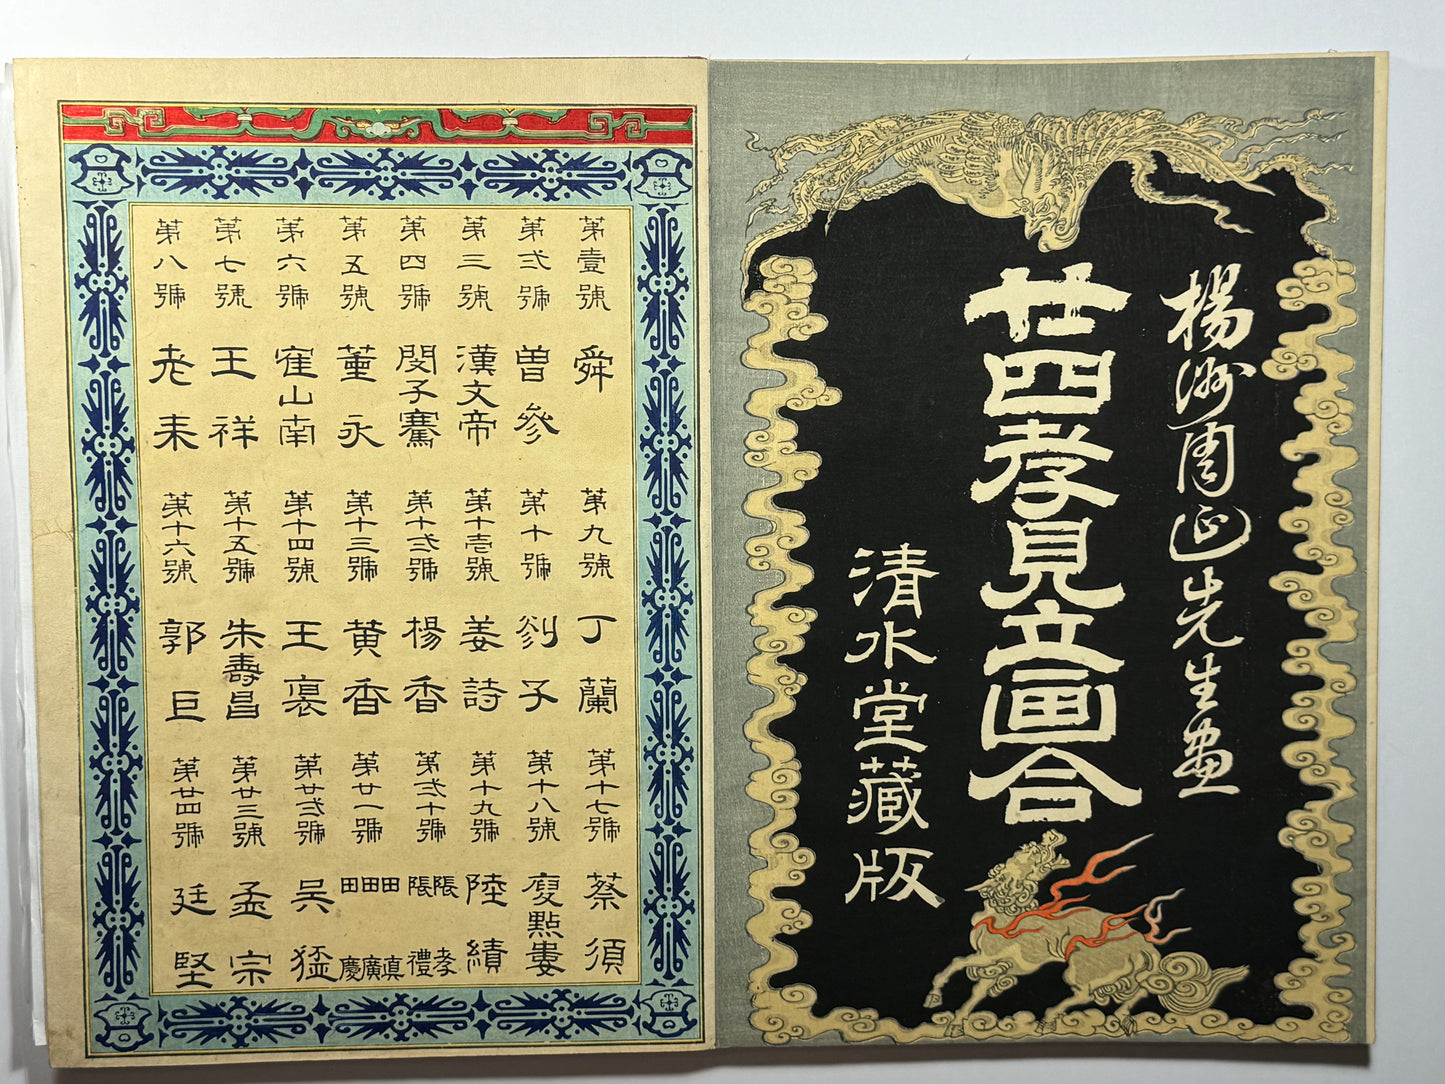 楊洲周延先生畫
廿四孝見立画合
清水堂藏版
第壹號 舜
第弍號 曽參
第三號 漢文帝
第四號 閔子騫
第五號 董永
第六號 崔山南
第七號 王祥
第八號 老耒
第九號 丁蘭
第十號 剡子
第十壱號 姜詩
第十弍號 楊香
第十三號 黄香
第十四號 王裒
第十五號 朱壽昌
第十六號 郭巨
第十七號 蔡須
第十八號 庾黔婁
第十九號 陸績
第弍十號 張孝 張禮
第廿一號 田真 田廣 田慶
第廿弍號 吴猛
第廿三號 孟宗
第廿四號 廷堅